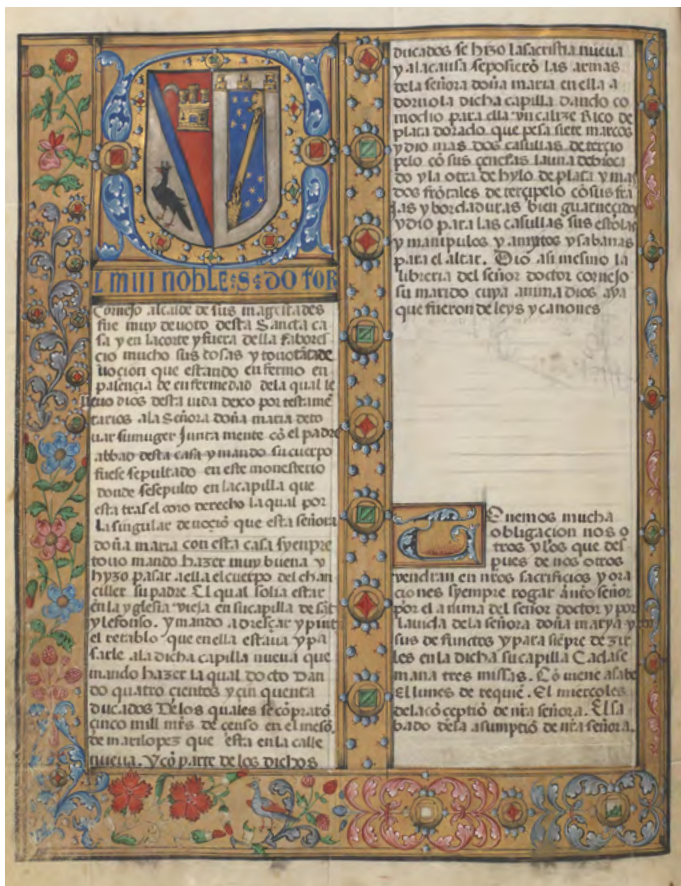 L MUI NOBLE: S: DOTOR
Cornejo alcalde de sus magestades
fue muy deuoto desta Sancta ca
sa y en la corte y fuera della fabore
cio mucho sus cosas y
uocion que estando enfermo en
palencia de enfermedad dela qual le
dios desta uida dexo por testamē
tarios ala Señora doña maria de to
uar su muger Junta mente cō el padre
abbad desta casa y mando su cuerpo
fuese sepultado en este monesterio
donde se sepulto en la capilla que
esta tras el coro derecho la qual por
la singular deuociō que esta señora
doña maria con esta casa syenpre
touo mando hazer muy buena y
hyzo pasar aella el cuerpo del chan
ciller su padre El qual solia estar
en la yglesia vieja en su capilla de sāt
ylefonso. Y mando adresçar y pint
el retablo que en ella estaua y pa
sarle ala dicha capilla nueua que
mando hazer la qual docto Dan
do quatro cientos y çin quenta
ducados De los quales se cōpraro
çinco mill mrs de censo en el mesō
de marilopez que esta en la calle
nueua. Y cō parte de los dichos
ducados se hyzo la sacristia nueua
y ala causa se posierō las armas
dela señora doña maria en ella a
dorno la dicha capilla Dando co
modio para ella vn calize Rico de
plata dorado que pesa siete marcos
y dio mas dos casullas de terçio
pelo cō sus çenefas la una de broca
do y la otra de hylo de plata y mas
dos frōtales de terçipelo cō sus frā
jas y bordaduras bien guarneçido
y dio para las casullas sus estolas
y manipulos y amytos y sabanas
para el altar. Dio asi mesmo la
libreria del señor doctor cornejo
su marido cuya anima dios aya
que fueron de leys y canones
Tenemos mucha
obligacion nos o
tros y los que des
pues de nos otros
vendran en nros sacrificios y ora
ciones syempre rogar a nro señor
por el anima del señor doctor y por
la uida dela señora doña marya y
sus defunctos y para siēpre dezir
les en la dicha su capilla Cada se
mana tres missas. Cōuiene a sabe
El lunes de requiē. El miercoles
dela cōceptiō de nra señora. El sa
bado dela asumptiō de nra señora.